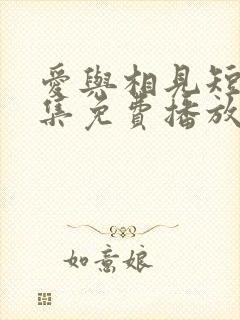 愛與相見短
集免費播放
如意娘